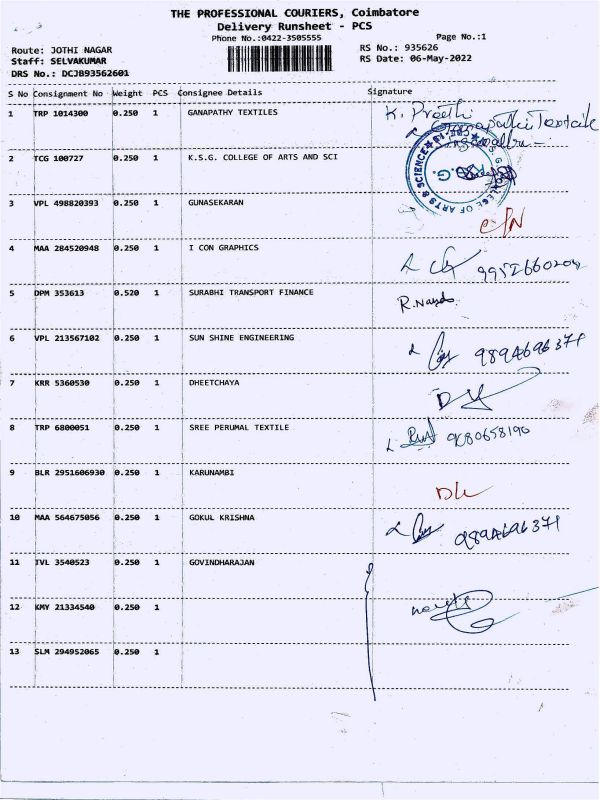 THE PROFESSIONAL COURIERS, Coimbatore
Delivery Runsheet - PCS
Phone No.:0422-3505555
Page No.:1
Route: JOTHI NAGAR
RS No.: 935626
Staff: SELVAKUMAR
RS Date: 06-May-2022
DRS No.: DCJB93562601
S No Consignment No Weight PCS Consignee Details Signature
1 TRP 1014300 0.250 1 GANAPATHY TEXTILES K. Preethi
2 TCG 100727 0.250 1 K.S.G. COLLEGE OF ARTS AND SCI
3 VPL 498820393 0.250 1 GUNASEKARAN
4 MAA 284520948 0.250 1 I CON GRAPHICS
5 DPM 353613 0.520 1 SURABHI TRANSPORT FINANCE
6 VPL 213567102 0.250 1 SUN SHINE ENGINEERING 9894696371
7 KRR 5360530 0.250 1 DHEETCHAYA
8 TRP 6800051 0.250 1 SREE PERUMAL TEXTILE 9080658190
9 BLR 2951606930 0.250 1 KARUNAMBI
10 MAA 564675056 0.250 1 GOKUL KRISHNA 9894696371
11 IVL 3540523 0.250 1 GOVINDHARAJAN
12 KMY 21334540 0.250 1
13 SLM 294952065 0.250 1